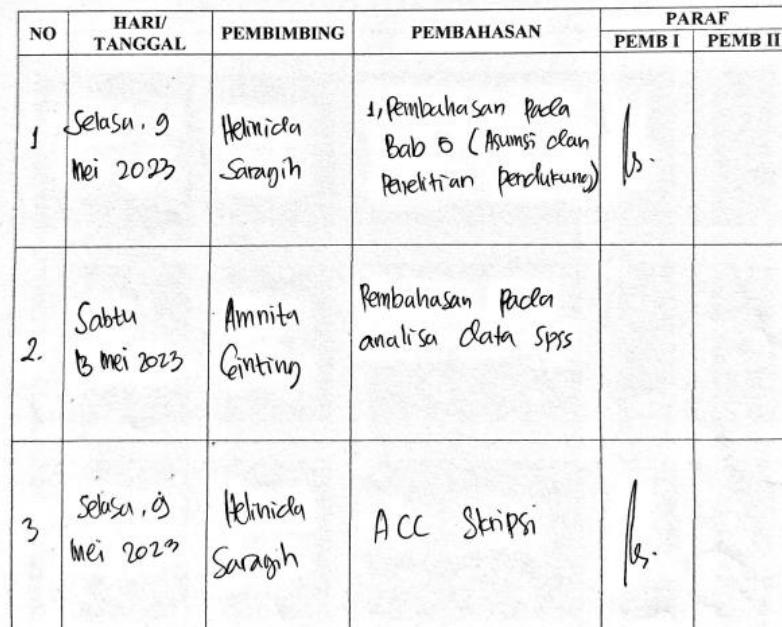 NO HARI/ TANGGAL PEMBIMBING PEMBAHASAN PARAF
PEMB I PEMB II
1 Selasa, 9 Mei 2023 Helinida Saragih 1, Pembahasan pada
Bab 5 (Asumsi dan
Penelitian pendukung)
2. Sabtu 13 mei 2023 Amnita Ginting Pembahasan pada
analisa data spss
3 Selasa, 9 Mei 2023 Helinida Saragih ACC Skripsi